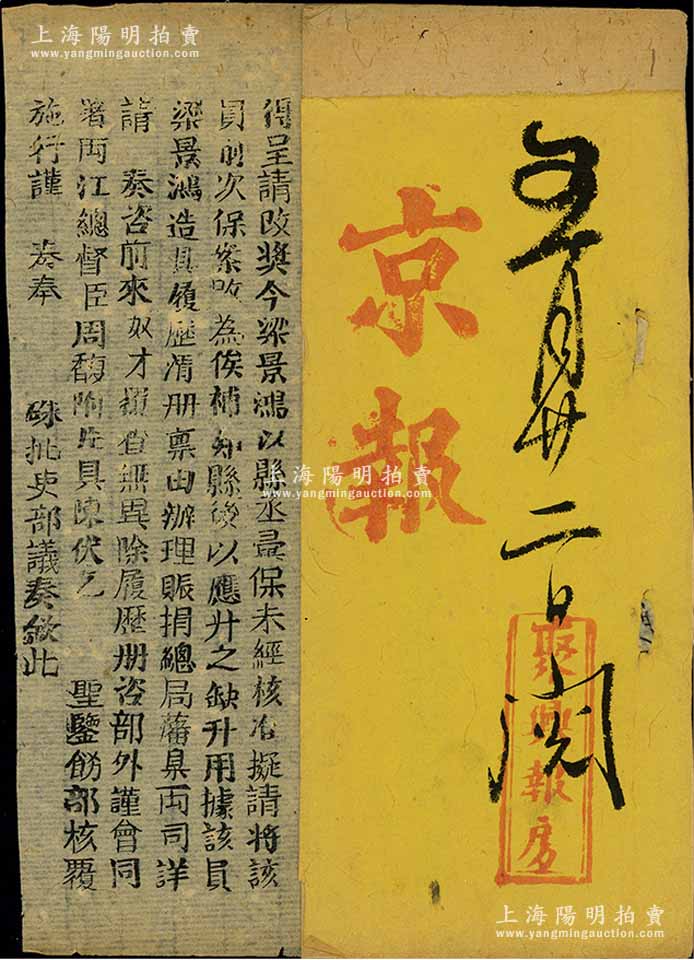 上海陽明拍賣
www.yangmingauction.com
京報
五月廿二日 閱
聚興報房
得呈請改獎今梁景鴻以縣丞彙保未經核准擬請將該
員前次保案改為俟補知縣後以應升之缺升用據該員
梁景鴻造具履歷清册稟由辦理賑捐總局藩臬兩司詳
請 奏咨前來奴才覆查無異除履歷册咨部外謹會同
署兩江總督臣周馥附片具陳伏乞 聖鑒飭部核覆
施行謹 奏奉 硃批吏部議奏欽此
上海陽明拍賣
www.yangmingauction.com
上海陽明拍賣
www.yangmingauction.com